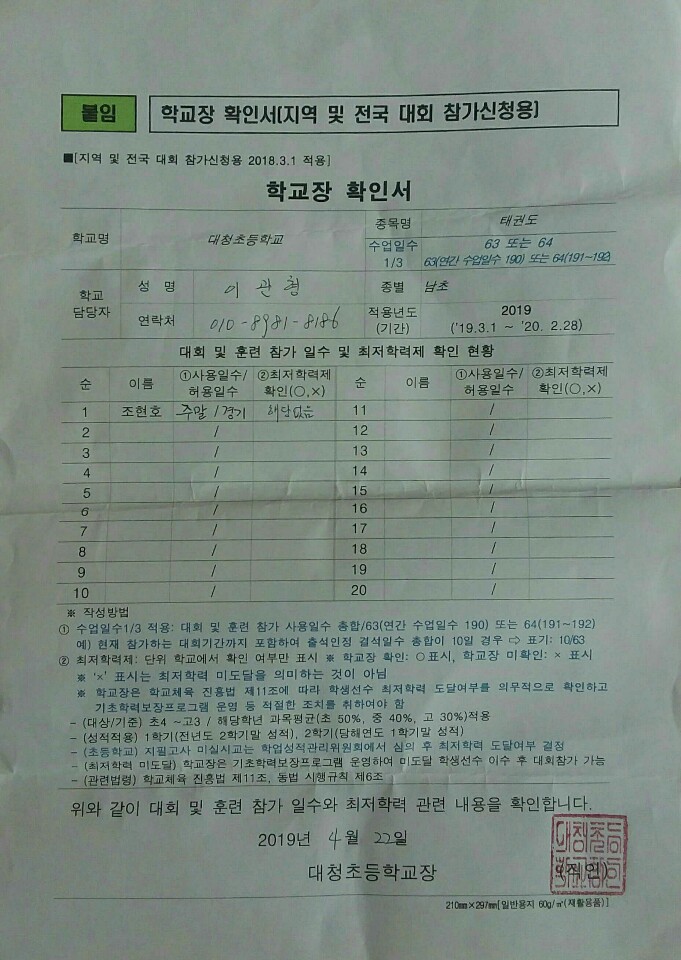 붙임 학교장 확인서(지역 및 전국 대회 참가신청용)
■[지역 및 전국 대회 참가신청용 2018.3.1 적용]
학교장 확인서
학교명 대청초등학교 종목명 태권도
수업일수 1/3 63 또는 64
63(연간 수업일수 190) 또는 64(191~192)
학교 담당자 성 명 이관형 종별 남초
연락처 010-8981-8186 적용년도 (기간) 2019
('19.3.1 ~ '20. 2.28)
대회 및 훈련 참가 일수 및 최저학력제 확인 현황
순 이름 ①사용일수/허용일수 ②최저학력제 확인(○,×) 순 이름 ①사용일수/허용일수 ②최저학력제 확인(○,×)
1 조현호 주말 / 경기 해당없음 11 /
2 / 12 /
3 / 13 /
4 / 14 /
5 / 15 /
6 / 16 /
7 / 17 /
8 / 18 /
9 / 19 /
10 / 20 /
※ 작성방법
① 수업일수1/3 적용: 대회 및 훈련 참가 사용일수 총합/63(연간 수업일수 190) 또는 64(191~192)
예) 현재 참가하는 대회기간까지 포함하여 출석인정 결석일수 총합이 10일 경우 ⇨ 표기: 10/63
② 최저학력제: 단위 학교에서 확인 여부만 표시 ※ 학교장 확인: ○표시, 학교장 미확인: × 표시
※ '×' 표시는 최저학력 미도달을 의미하는 것이 아님
※ 학교장은 학교체육 진흥법 제11조에 따라 학생선수 최저학력 도달여부를 의무적으로 확인하고
기초학력보장프로그램 운영 등 적절한 조치를 취하여야 함
- (대상/기준) 초4 ~고3 / 해당학년 과목평균(초 50%, 중 40%, 고 30%)적용
- (성적적용) 1학기(전년도 2학기말 성적), 2학기(당해연도 1학기 말 성적)
- (초등학교) 지필고사 미실시교는 학업성적관리위원회에서 심의 후 최저학력 도달여부 결정
- (최저학력 미도달) 학교장은 기초학력보장프로그램 운영하여 미도달 학생선수 이수 후 대회참가 가능
- (관련법령) 학교체육 진흥법 제11조, 동법 시행규칙 제6조
위와 같이 대회 및 훈련 참가 일수와 최저학력 관련 내용을 확인합니다.
2019년 4월 22일
대청초등학교장 (직인)
210㎜×297㎜[일반용지 60g/㎡(재활용품)]